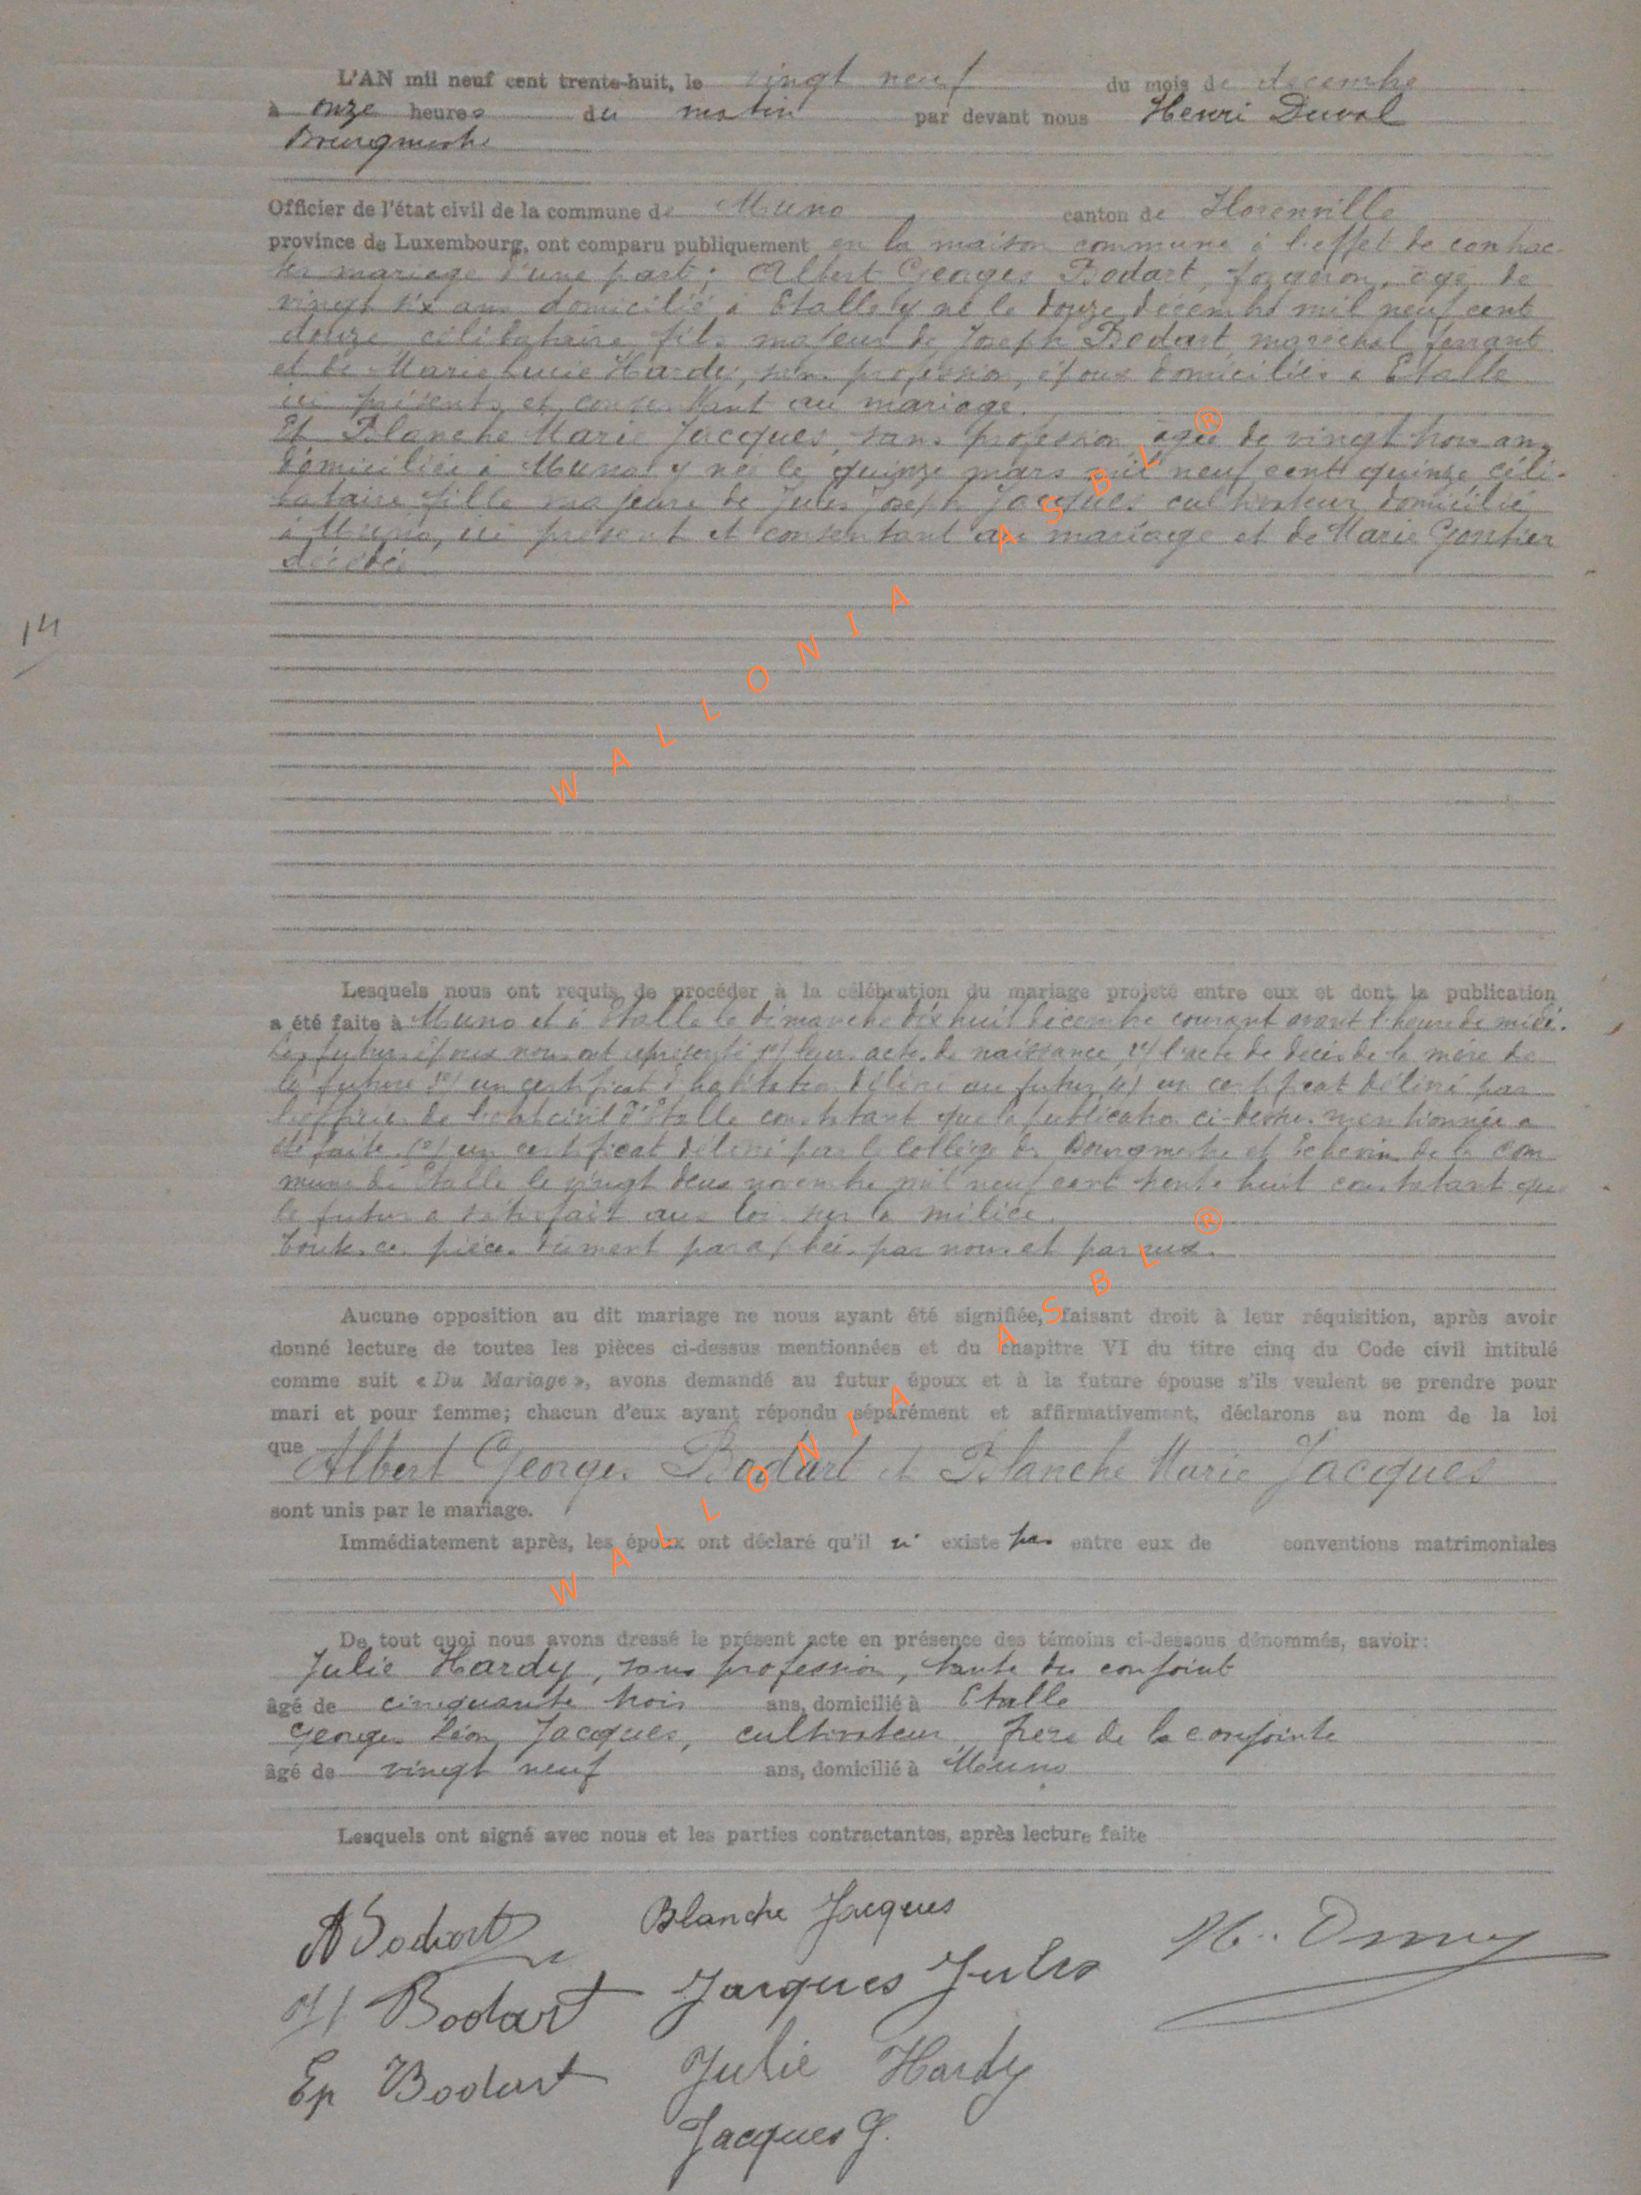 L'AN mil neuf cent trente-huit, le vingt neuf du mois de décembre
à onze heures du matin par devant nous Henri Duval
Bourgmestre
Officier de l'état civil de la commune de Muno canton de Florenville
province de Luxembourg, ont comparu publiquement en la maison commune à l'effet de contrac-
ter mariage d'une part; Albert Georges Bodart, forgeron, âgé de
vingt six ans domicilié à Etalle y né le douze décembre mil neuf cent
douze célibataire fils majeur de Joseph Bodart, maréchal ferrant
et de Marie Lucie Hardy, sans profession, époux domiciliés à Etalle
ici présents et consentant au mariage.
Et Blanche Marie Jacques, sans profession âgée de vingt trois ans,
domiciliée à Muno y née le quinze mars mil neuf cent quinze, céli-
bataire fille majeure de Jules Joseph Jacques cultivateur domicilié
à Muno, ici présent et consentant au mariage et de Marie Gontier
décédée
14
Lesquels nous ont requis de procéder à la célébration du mariage projeté entre eux et dont la publication
a été faite à Muno et à Etalle le dimanche dix huit décembre courant avant l'heure de midi.
Les futurs époux nous ont représenté 1º/ leurs actes de naissance, 2º/ l'acte de décès de la mère de
la future 3º/ un certificat d'habitation délivré au futur, 4/ un certificat délivré par
l'officier de l'état civil d'Etalle constatant que la publication ci-dessus mentionnée a
été faite, 5º/ un certificat délivré par le Collège des Bourgmestre et Echevins de la com
mune de Etalle le vingt deux novembre mil neuf cent trente huit constatant que
le futur a satisfait aux lois sur la milice.
Toutes ces pièces dûment paraphées par nous et par eux.
Aucune opposition au dit mariage ne nous ayant été signifiée, faisant droit à leur réquisition, après avoir
donné lecture de toutes les pièces ci-dessus mentionnées et du chapitre VI du titre cinq du Code civil intitulé
comme suit « Du Mariage », avons demandé au futur époux et à la future épouse s'ils veulent se prendre pour
mari et pour femme; chacun d'eux ayant répondu séparément et affirmativement, déclarons au nom de la loi
que Albert Georges Bodart et Blanche Marie Jacques
sont unis par le mariage.
Immédiatement après, les époux ont déclaré qu'il n' existe pas entre eux de conventions matrimoniales
De tout quoi nous avons dressé le présent acte en présence des témoins ci-dessous dénommés, savoir:
Julie Hardy, sans profession, tante du conjoint
âgé de cinquante trois ans, domicilié à Etalle
Georges Léon Jacques, cultivateur, frère de la conjointe
âgé de vingt neuf ans, domicilié à Muno
Lesquels ont signé avec nous et les parties contractantes, après lecture faite
A Bodart Blanche Jacques
Bodart Jacques Jules
Ep Bodart Julie Hardy
Jacques G.
WALLONIA ASBL ®
WALLONIA ASBL ®